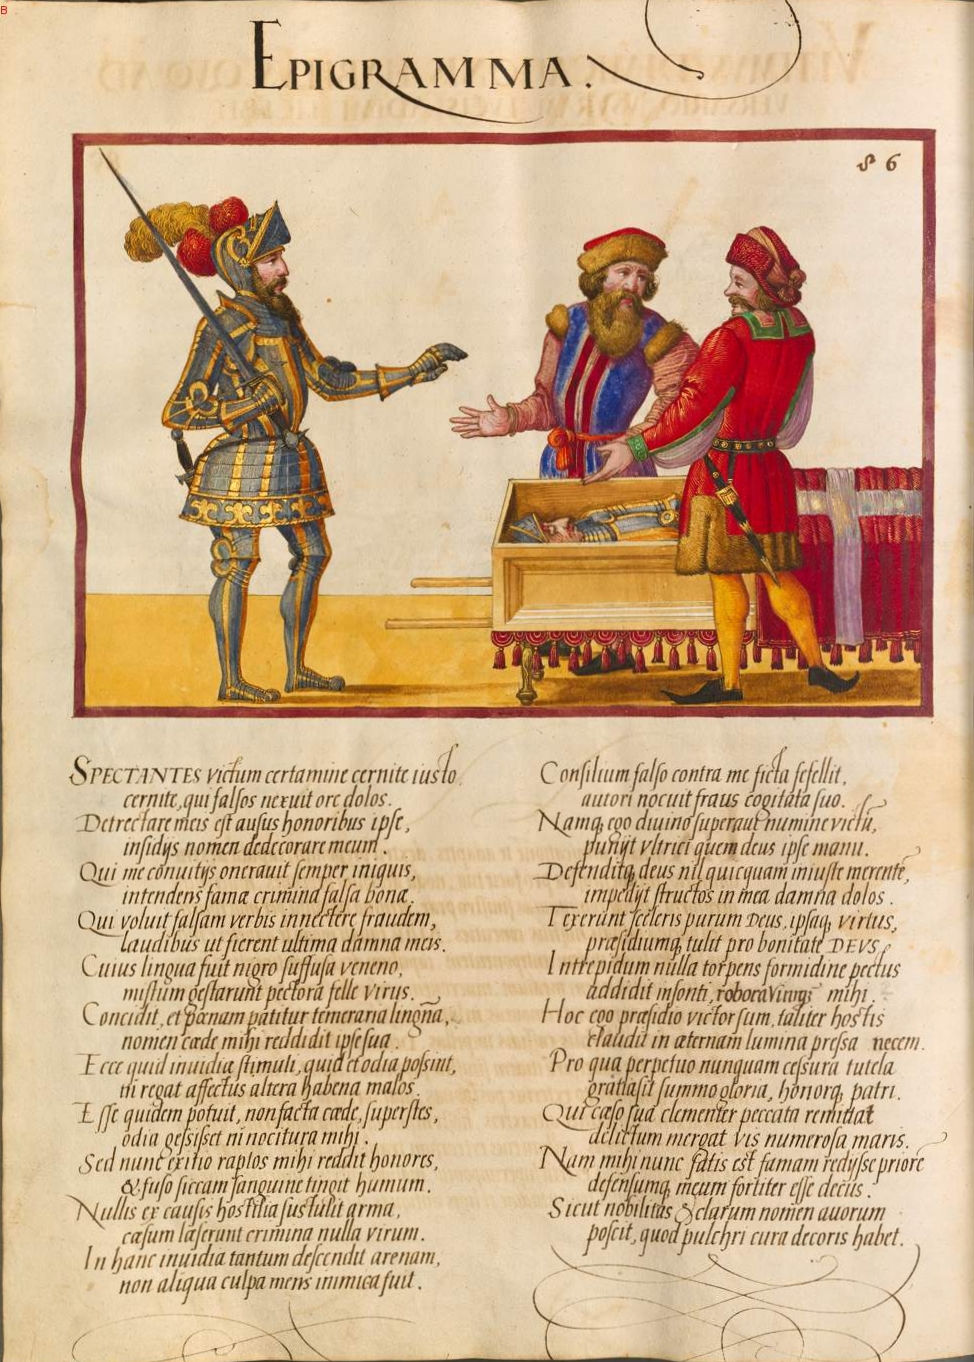 B
EPIGRAMMA.
86
SPECTANTES victum certamine cernite iusto
cernite, qui falsos nexuit ore dolos.
Detrectare meis est ausus honoribus ipse,
insidijs nomen dedecorare meum.
Qui me conuitijs onerauit semper iniquis,
intendens famæ crimina falsa bonæ.
Qui voluit falsam verbis innectere fraudem,
laudibus ut fierent ultima damna meis.
Cuius lingua fuit nigro suffusa veneno,
mistum gestarunt pectora felle virus.
Concidit, et pœnam patitur temeraria lingua,
nomen cæde mihi reddidit ipse sua.
Ecce quid inuidiæ stimuli, quid et odia possint,
ni regat affectus altera habena malos.
Esse quidem potuit, non facta cæde, superstes,
odia gessisset ni nocitura mihi.
Sed nunc exitio raptos mihi reddit honores,
& fuso siccam sanguine tingit humum.
Nullis ex causis hostilia sustulit arma,
cæsum læserunt crimina nulla virum.
In hanc inuidia tantum descendit arenam,
non aliqua culpa mens inimica fuit.
Consilium falso contra me ficta fefellit,
autori nocuit fraus cogitata suo.
Namq ego diuino superaui numine victū,
punijt vltrici quem deus ipse manu.
Defenditq deus nil quicquam iniuste merentē,
impedijt structos in mea damna dolos.
Texerunt sceleris purum Deus, ipsaq virtus,
præsidiumq tulit pro bonitate DEVS.
Intrepidum nulla torpens formidine pectus
addidit insonti, mihi.
Hoc ego præsidio victor sum, taliter hostis
claudit in æternam lumina pressa necem.
Pro qua perpetuo nunquam cessura tutela
gratia sit summo gloria, honorq patri.
Qui cæso sua clementer peccata remittat
delictum mergat vis numerosa maris.
Nam mihi nunc satis est famam redijsse priorē
defensumq meum fortiter esse decus.
Sicut nobilitas & clarum nomen auorum
poscit, quod pulchri cura decoris habet.